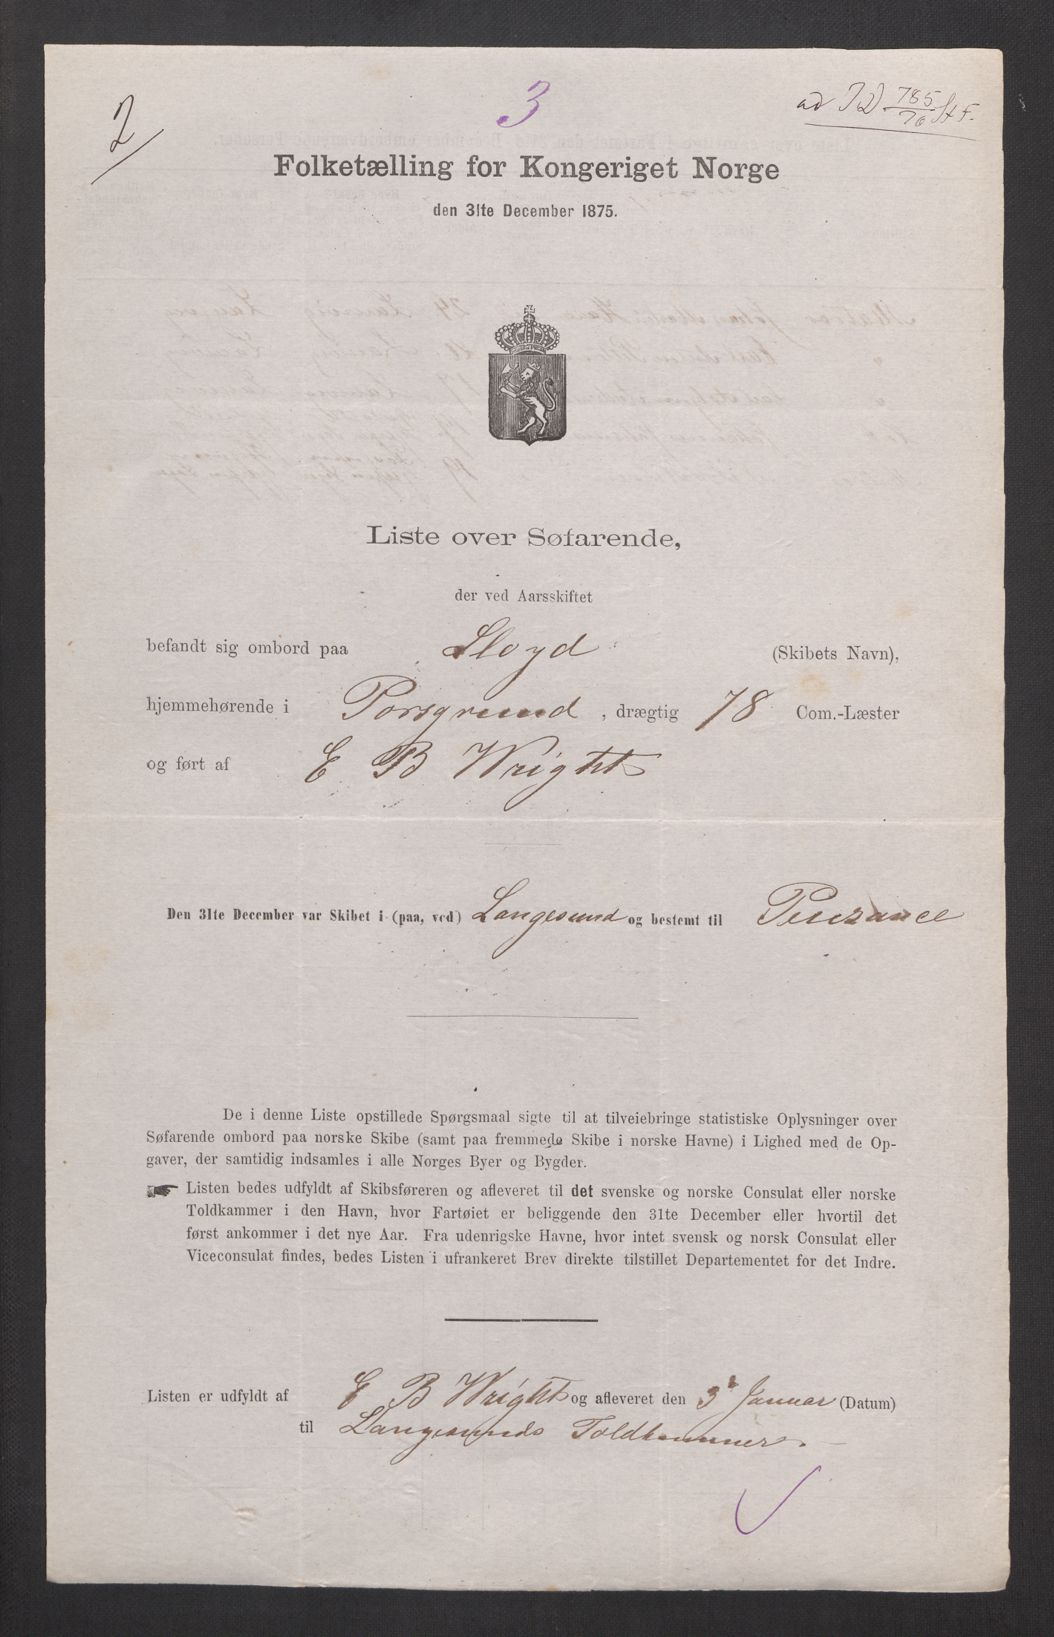 2
3
ad 785/76 St F.
Folketælling for Kongeriget Norge
den 31te December 1875.
Liste over Søfarende,
der ved Aarsskiftet
befandt sig ombord paa Lloyd (Skibets Navn),
hjemmehørende i Porsgrund, drægtig 78 Com.-Læster
og ført af E B Wright
Den 31te December var Skibet i (paa, ved) Langesund og bestemt til Penzance
De i denne Liste opstillede Spørgsmaal sigte til at tilveiebringe statistiske Oplysninger over
Søfarende ombord paa norske Skibe (samt paa fremmede Skibe i norske Havne) i Lighed med de Op-
gaver, der samtidig indsamles i alle Norges Byer og Bygder.
Listen bedes udfyldt af Skibsføreren og afleveret til det svenske og norske Consulat eller norske
Toldkammer i den Havn, hvor Fartøiet er beliggende den 31te December eller hvortil det
først ankommer i det nye Aar. Fra udenrigske Havne, hvor intet svensk og norsk Consulat eller
Viceconsulat findes, bedes Listen i ufrankeret Brev direkte tilstillet Departementet for det Indre.
Listen er udfyldt af E B Wright og afleveret den 3 Januar (Datum)
til Langesunds Toldkammer